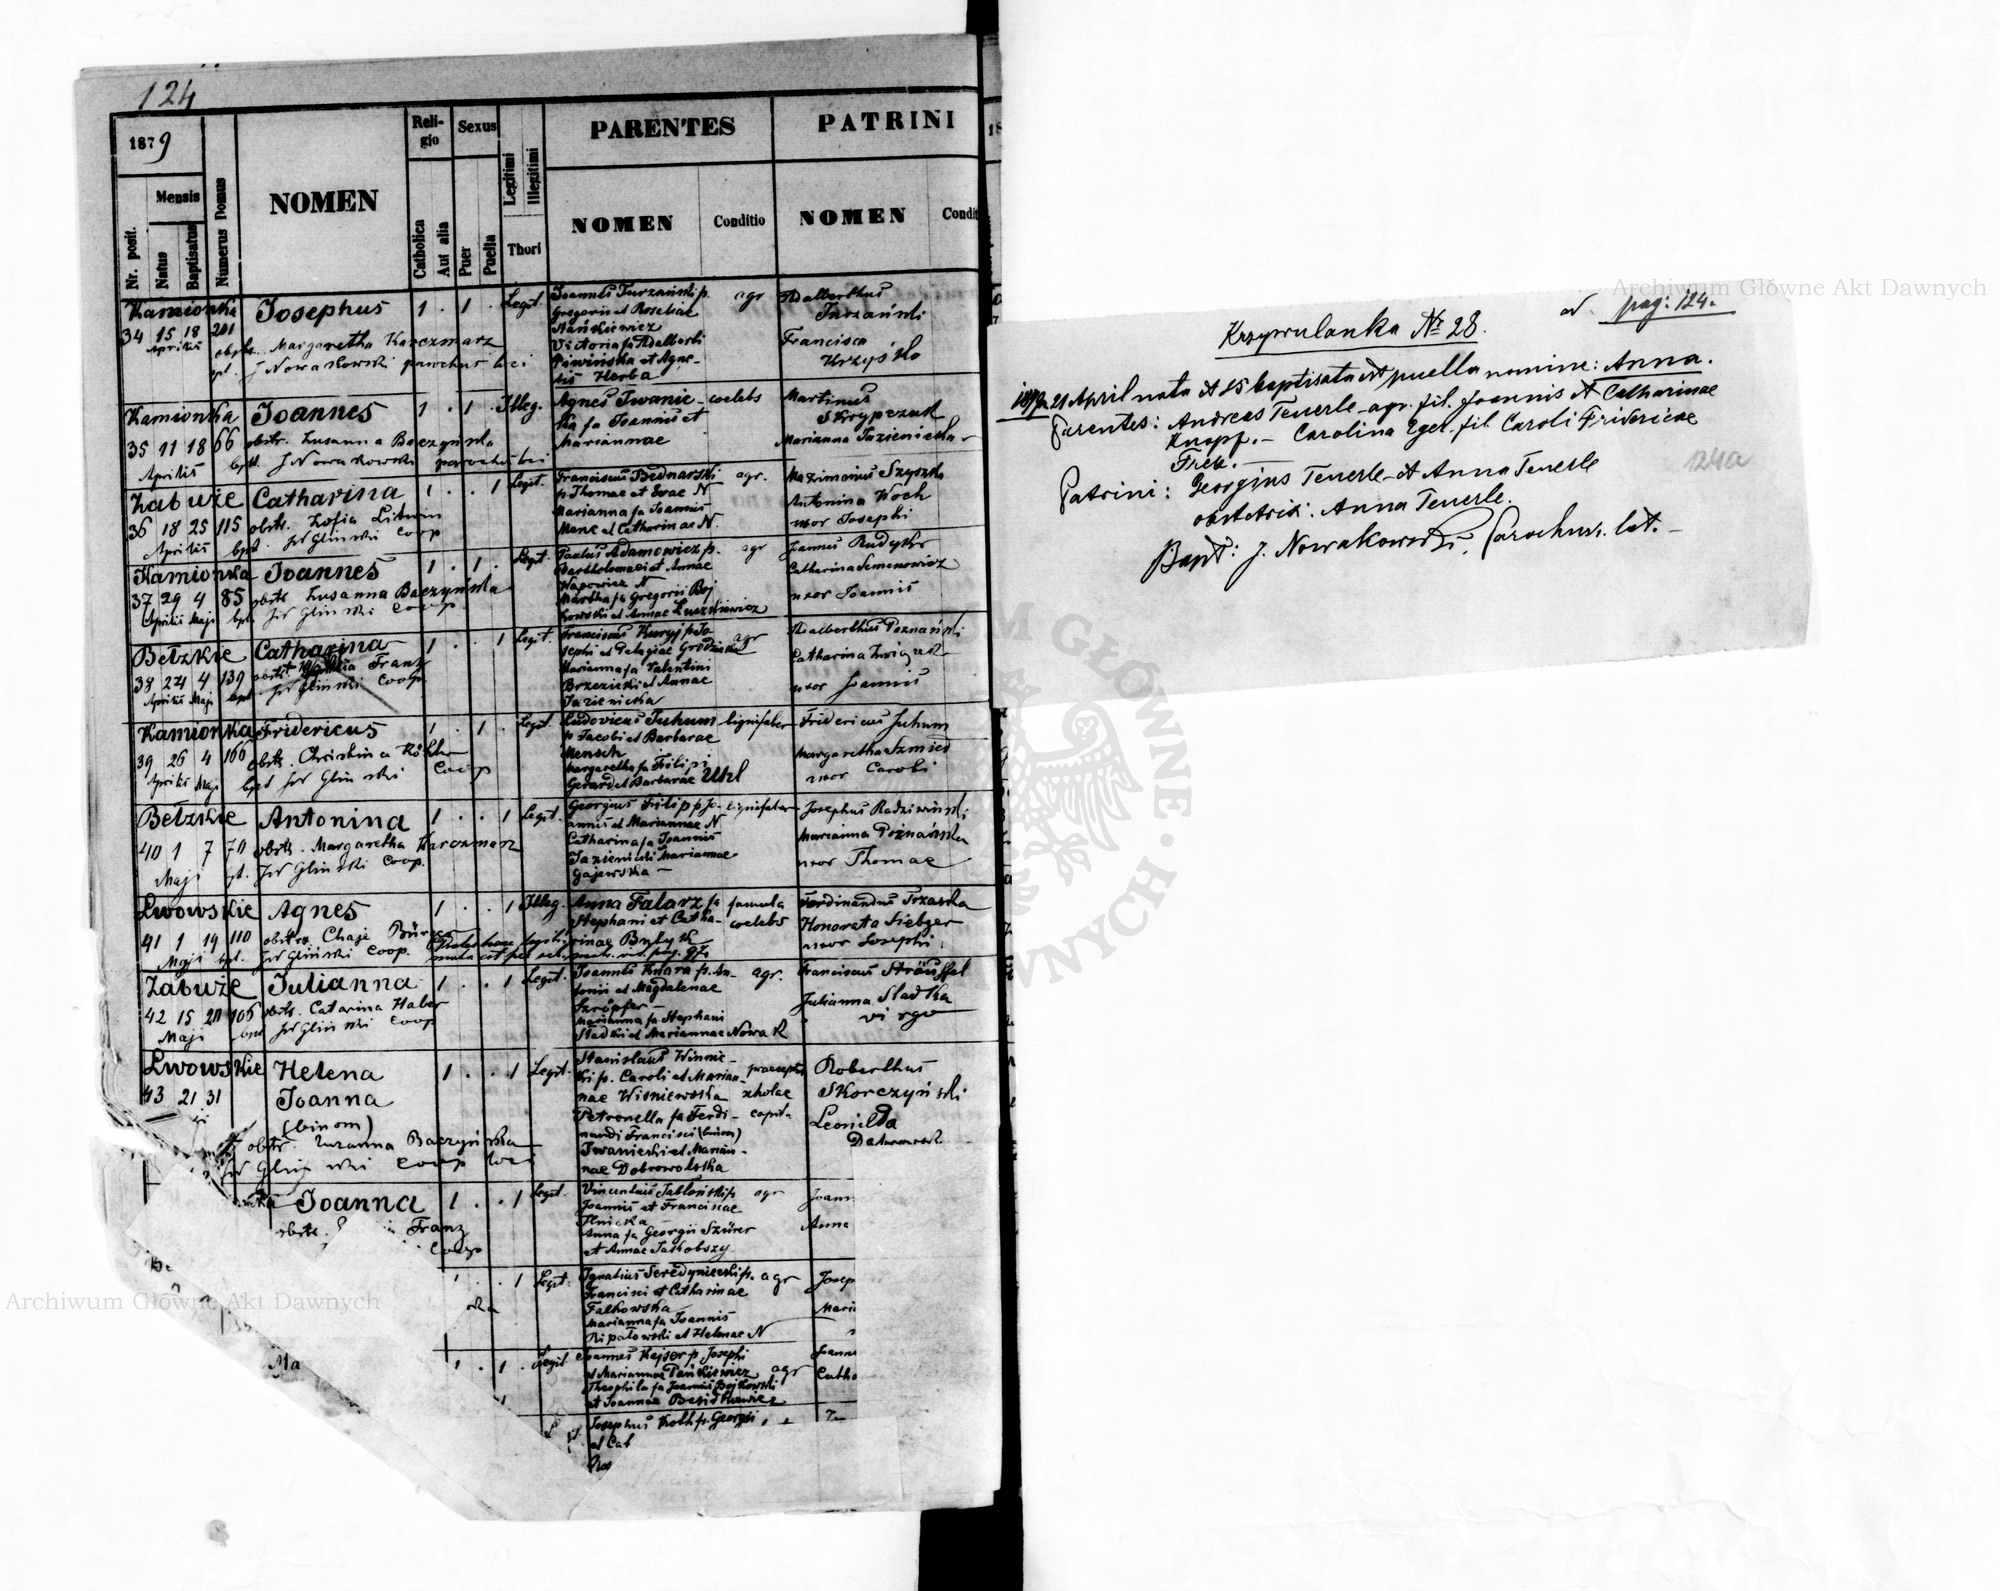 124
1879
Nr. posit.
Mensis
Natus
Baptisatus
Numerus Domus
NOMEN
Religio
Catholica
Aut alia
Sexus
Puer
Puella
Legitimi
Illegitimi
Thori
PARENTES
NOMEN
Conditio
PATRINI
NOMEN
Condit
Kamionka
34 15 18 201
Aprilis
Josephus
obstr. Margaretha Karczmarz
J Nowakowski parochus loci
1 . 1 . Legit.
Joannes Turzański p.
Gregorii et Rosaliae
Victoria fa Adalberti
et Agne-
tis Herba
agr
Adalberthus
Turzański
Francisca
Krzyśko
Kamionka
35 11 18 66
Aprilis
Joannes
obstr. Zusanna Baczyńska
bpt. J Nowakowski parochus loci
1 . 1 . Illeg.
Agnes Iwanic-
ka fa Joannis et
Mariannae
coelebs
Martinus
Skrypczuk
Marianna Jazienicka
Zabuże
36 18 25 115
Aprilis
Catharina
obstr. Zofia Litwin
bpt. Glinski Coop
1 . . 1 Legit.
Franciscus Bednarski
p Thomae et Evae N
Marianna fa Joannis
et Catharinae N.
agr.
Maximianus Szyszka
Antonina Koch
uxor Josephi
Kamionka
37 29 4 85
Aprilis Maji
Joannes
obstr Zusanna Baczyńska
bpt. Glinski Coop.
1 . 1 . Legit
Paulus Adamowicz p.
Bartholomaei et Annae
Martha fa Gregorii Boj
kowski et Annae
agr
Joannes Rudyk
Catharina Semenowicz
uxor Joannis
Betzkie
38 24 4 139
Aprilis Maji
Catharina
Franz
Glinski Coop
1 . . 1 Legit.
Franciscus Kuryj p Jo
sephi et Pelagiae
Marianna fa Valentini
Brzezicki et Annae
Jazienicka
agr
Adalberthus Poznański
Catharina
uxor Joannis
Kamionka
39 26 4 166
Aprilis Maji
Fridericus
obstr. Christina Köhler
bpt Glinski Coop
1 . 1 . Legit.
Ludovicus Juhum
p Jacobi et Barbarae
Mensch
Margaretha fa Filipi
Gerard et Barbarae Uhl
lignifaber
Fridericus Juhum
Margaretha Szmied
uxor Caroli
Betzkie
40 1 7 70
Maji
Antonina
obstr. Margaretha Karczmarz
Glinski Coop.
1 . . 1 Legit.
Georgius Filipp Jo-
annis et Mariannae N
Catharina fa Joannis
Jazienicki Mariannae
Gajewska
lignifaber
Josephus Radziwiński
Marianna Poznańska
uxor Thomae
Lwowskie
41 1 19 110
Maji bpt.
Agnes
obstrx Chaje
Glinski Coop.
1 . . 1 Illeg.
Anna Falarz fa
Stephani et Catha-
rinae Bytyk
famula
coelebs
Ferdinandus Trzaska
Honorata Siebzer
uxor Josephi
Zabuże
42 15 20 106
Maji
Julianna
obstr. Catarina Haber
Glinski Coop
1 . . 1 Legit.
Joannes Knara p. An-
tonii et Magdalenae
Szröpfer
Marianna fa Stephani
Sladki et Mariannae Nowak
agr.
Franciscus Sträussel
Julianna Sladka
virgo
Lwowskie
43 21 31
Helena
Joanna
(binom)
obstr. Zuzanna Baczyńska
Glinski Coop loci
1 . . 1 Legit.
Stanislaus Winnic-
ki p. Caroli et Marian-
nae Wisniewska
Petronella fa Ferdi-
nandi Francisci (binom)
Iwanicki et Marian-
nae Dobrowolska
praeceptor
scholae
capit.
Roberthus
Skorczyński
Leonilda
Joanna
obstr. Franz
Coop
1 . . 1 Legit.
Vincentius Jabłoński p
Joannis et Franciscae
Ilnicka
Anna fa Georgii Szürer
et Annae Jakobszy
agr
Joann
Anna
. . 1 Legit.
Ignatius Seredynicki p.
Francisci et Catharinae
Falkowska
Marianna fa Joannis
Ripałowski et Helenae N
agr
Josep
Mari
1 . 1 . Legit
Joannes Kajser p Josephi
et Mariannae Pańkiewicz
Theophila fa Joannis Bojkowski
et Joannae
agr
Joann
Catha
Josephus Koth p. Georgii
et Cat
Ros
Ma
ad pag: 124.
Krzywulanka Nr 28.
1879 21 April nata et 25 baptisata est puella nomine: Anna.
Parentes: Andreas Teuerle agr. fil. Joannis et Catharinae
Knopf. – Carolina Eger. fil. Caroli Fridericae
Frek. –
Patrini: Georgius Teuerle et Anna Teuerle
obstetrix: Anna Teuerle.
Bapt: J. Nowakowski, Parochus. lat. –
124a
Archiwum Główne Akt Dawnych
Archiwum Główne Akt Dawnych
M GŁÓWNE
WNYCH